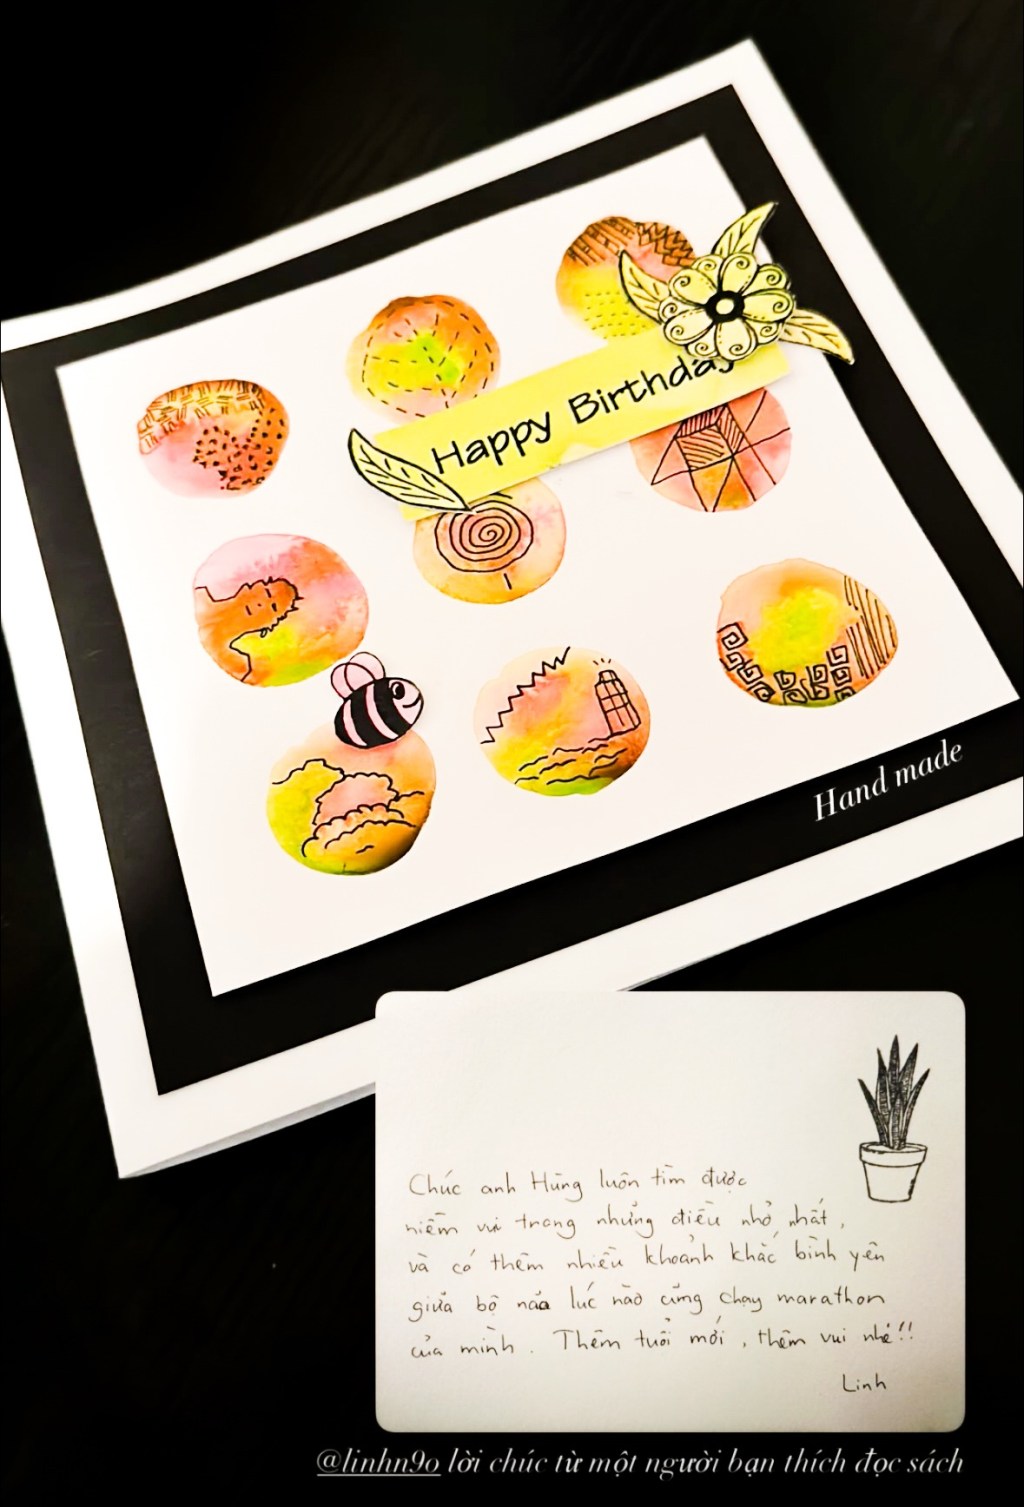 Happy Birthday
Hand made
Chúc anh Hùng luôn tìm được
niềm vui trong những điều nhỏ nhất,
và có thêm nhiều khoảnh khắc bình yên
giữa bộ não lúc nào cũng chạy marathon
của mình. Thêm tuổi mới, thêm vui nhé!!
Linh
@linhn90 lời chúc từ một người bạn thích đọc sách